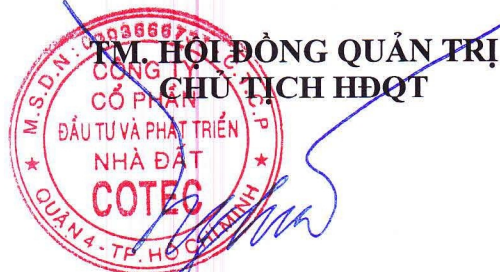 TM. HỘI ĐỒNG QUẢN TRỊ
CHỦ TỊCH HĐQT
CÔNG TY
CỔ PHẦN
ĐẦU TƯ VÀ PHÁT TRIỂN
NHÀ ĐẤT
COTEC
QUẬN 4 - TP. HỒ CHÍ MINH